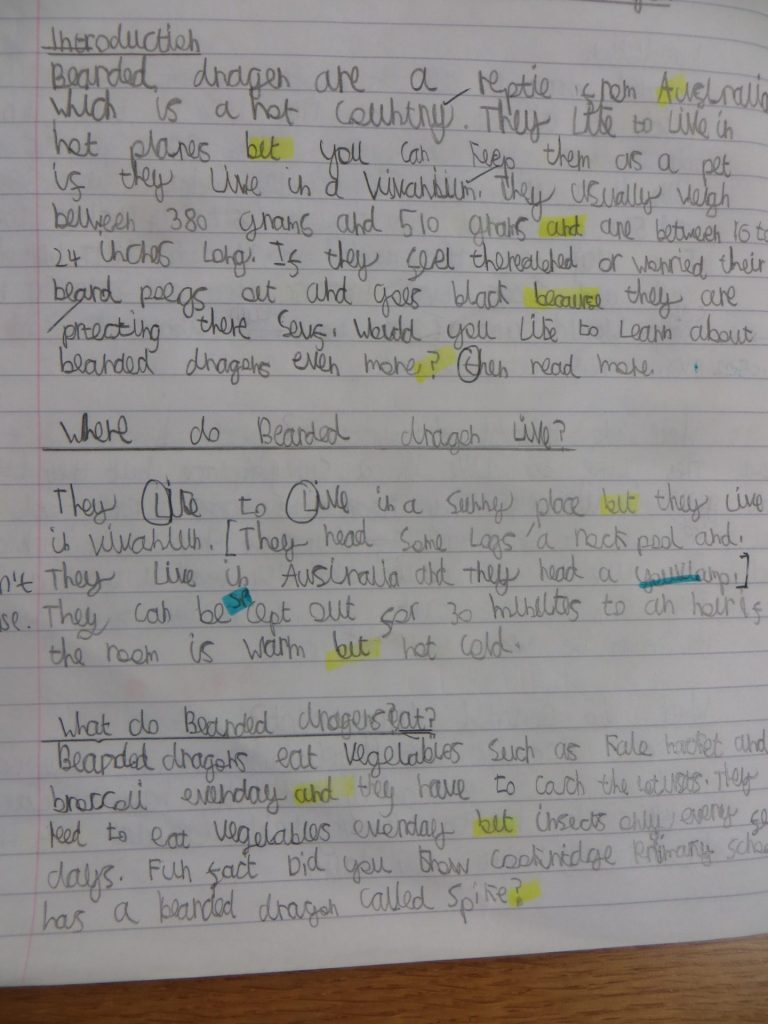 Introduction
Bearded dragon are a reptie from Australia
which is a hot country. They like to live in
hot planes but you can keep them as a pet
if they live in a vivanium. They usually weigh
between 380 grams and 510 grams and are between 16 to
24 inches long. If they feel therealened or worried, their
beard poegs out and goes black because they are
prtecting there sevs. Would you like to learn about
bearded dragons even more,? then read more.
Where do Bearded dragon live?
They Like to Live in a sunny place but they live
in vivanium. [They head some logs a rock pool and.
n't They live in Australia and they head a lamp.]
se. They can be sp cept out for 30 minuites to an hour if
the room is warm but not cold.
What do Bearded dragons eat?
Bearded dragons eat vegetables such as Kale and
broccoli everyday and they have to cach the locusts. They
need to eat vegetables everyday but insects only every
days. Fun fact Did you know Cookridge Primary
has a bearded dragon called Spike?